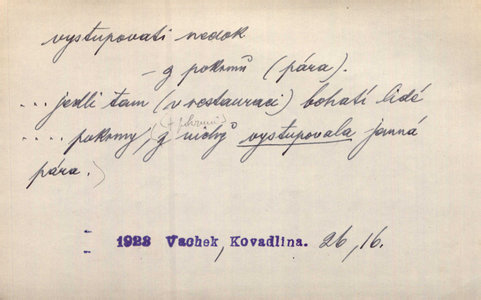 vystupovati nedok
– z pokrmů (pára).
... jedli tam (v restauraci) bohatí lidé
.... pokrmy, z nichž vystupovala jemná
pára.)
1923 Vachek, Kovadlina. 26, 16.